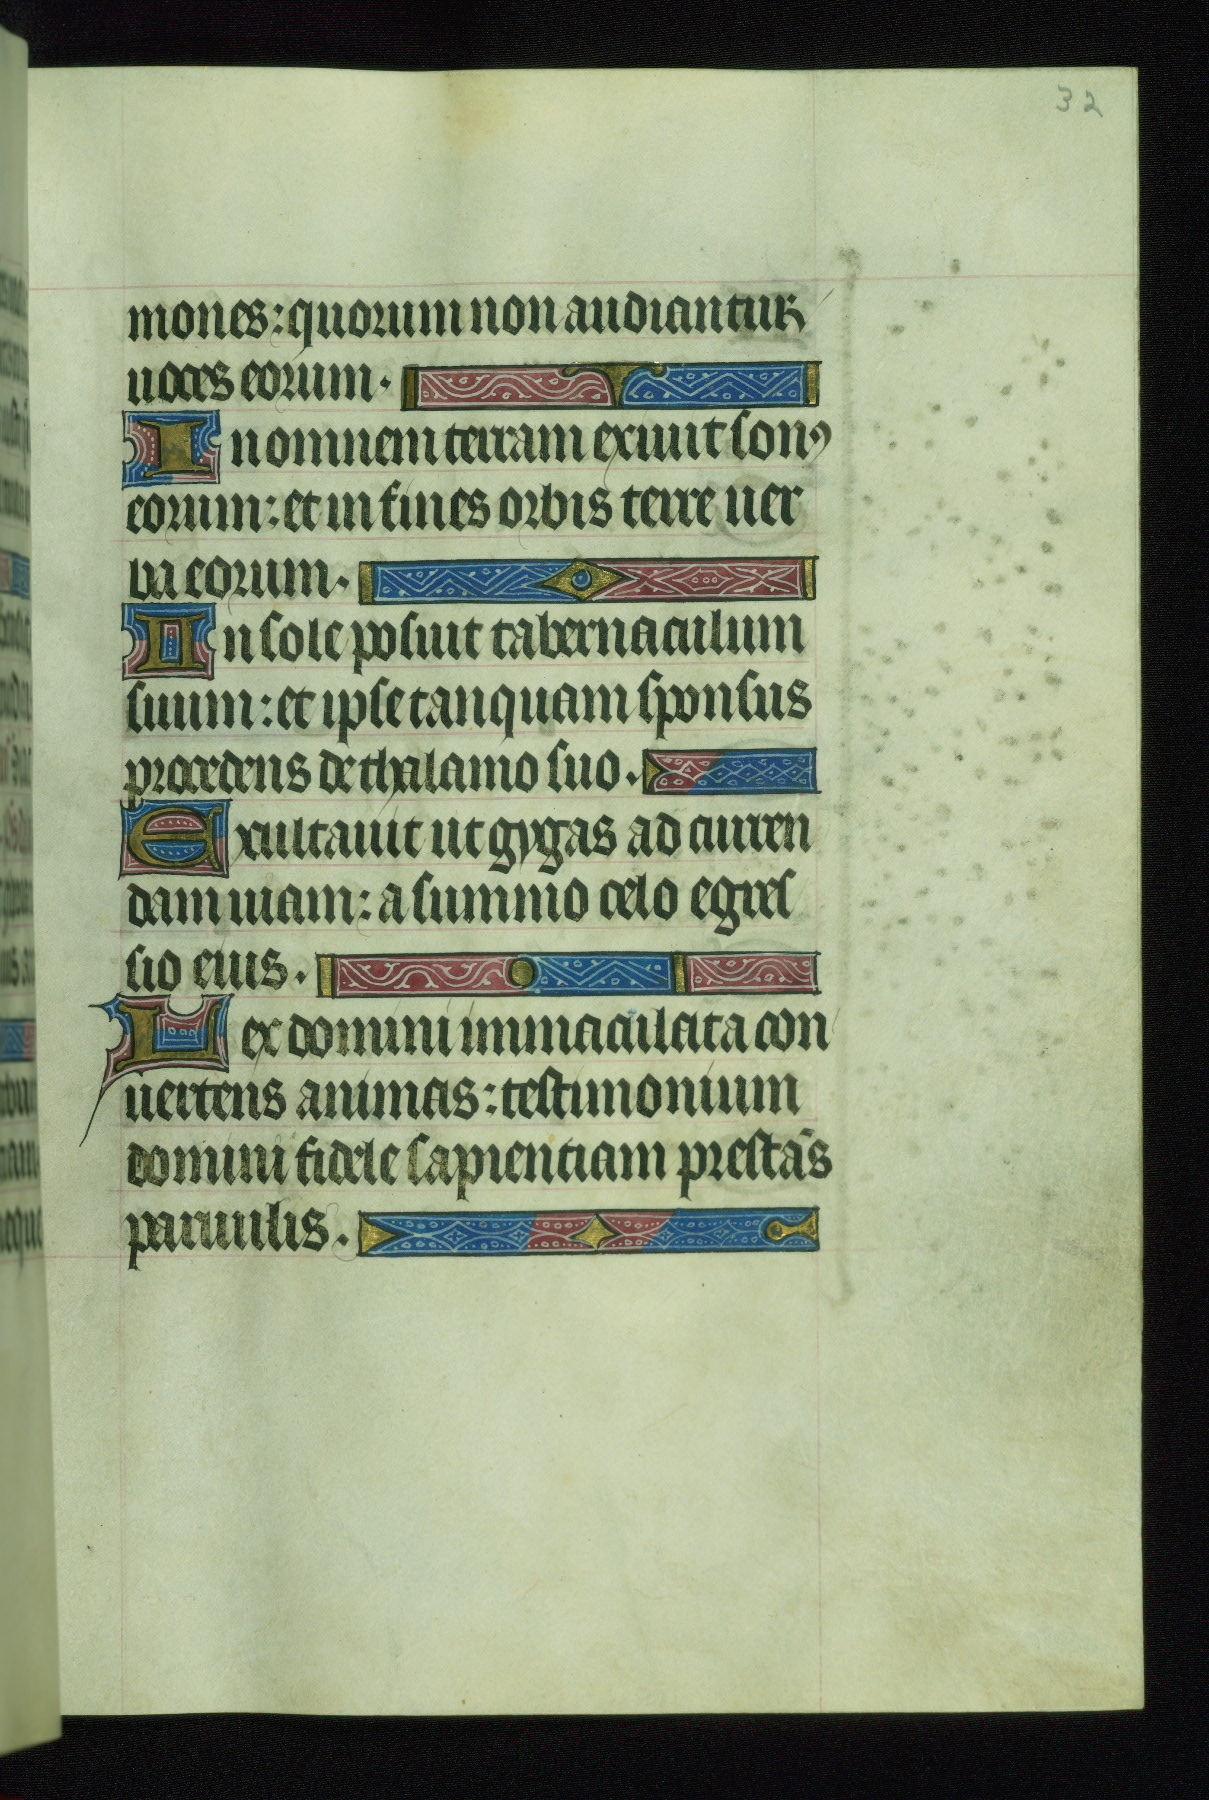 32
mones: quorum non audiantur
uoces eorum.
In omnem terram exiuit sonꝰ
eorum: et in fines orbis terre uer
ba eorum.
In sole posuit tabernaculum
suum: et ipse tanquam sponsus
procedens de thalamo suo.
Exultauit ut gygas ad curren
dam uiam: a summo celo egres
sio eius.
Lex domini immaculata con
uertens animas: testimonium
domini fidele sapientiam prestãs
paruulis.